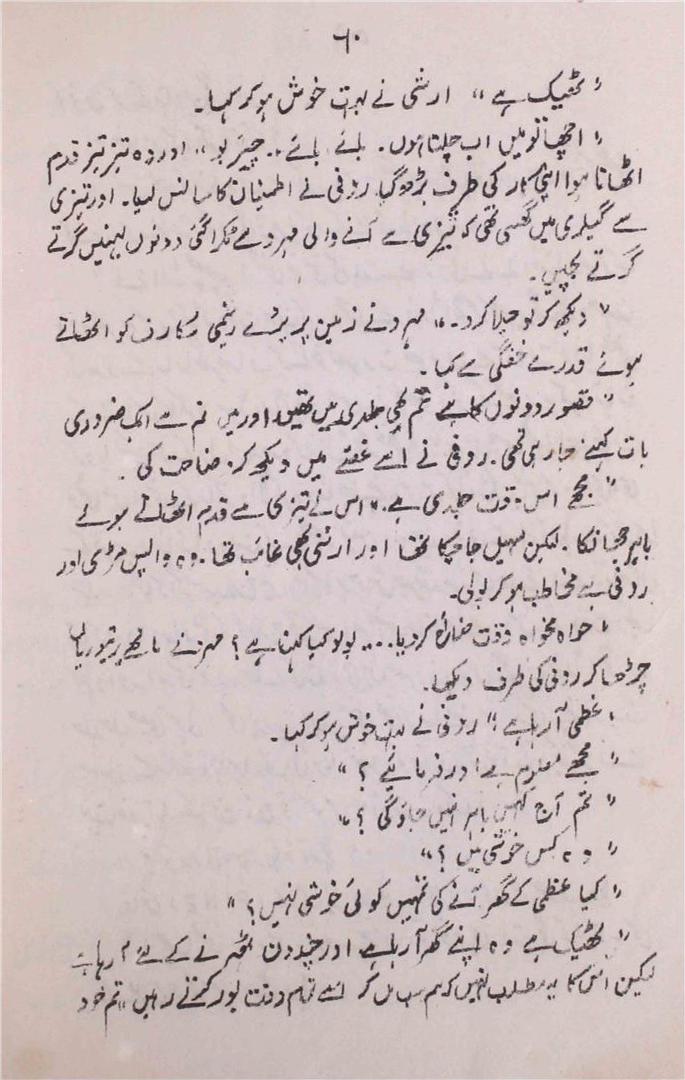 ۶۰
" ٹھیک ہے " ارشی نے بہت خوش ہو کر کہا۔
" اچھا تو میں اب چلتا ہوں۔ بائے، بائے .. چیر یو " اور وہ تیز تیز قدم
اٹھاتا ہوا اپنی کار کی طرف بڑھ گیا۔ روفی نے اطمینان کا سانس لیا۔ اور تیزی
سے گیلری میں گھسی تھی کہ تیزی سے آنے والی مہرو سے ٹکرا گئی دونوں بہنیں گرتے
گرتے بچیں۔
" دیکھ کر تو چلا کرو۔ " مہرو نے زمین پر پڑے ریشمی سکارف کو اٹھاتے
ہوئے قدرے خفگی سے کہا۔
" قصور دونوں کا ہے تم بھی جلدی میں تھیں اور میں تم سے ایک ضروری
بات کہنے جا رہی تھی۔ روفی نے اسے غصے میں دیکھ کر وضاحت کی۔
" مجھے اس وقت جلدی ہے۔ " اس نے تیزی سے قدم اٹھاتے ہوئے
باہر جھانکا۔ لیکن سہیل جا چکا تھا اور ارشی بھی غائب تھا۔ وہ واپس مڑی اور
روفی سے مخاطب ہو کر بولی۔
" خواہ مخواہ وقت ضائع کر دیا .... بولو کیا کہنا ہے؟ مہر نے ماتھے پر تیوریاں
چڑھا کر روفی کی طرف دیکھا۔
" عظمی آ رہا ہے " روفی نے بہت خوش ہو کر کہا۔
" مجھے معلوم ہے اور فرمائیے ؟ "
" تم آج کہیں باہر نہیں جاؤ گی ؟ "
" وہ کس خوشی میں ؟ "
" کیا عظمی کے گھر آنے کی تمہیں کوئی خوشی نہیں ؟ "
" ٹھیک ہے وہ اپنے گھر آ رہا ہے اور چند دن ٹھہرنے کے لئے آ رہا ہے
لیکن اس کا یہ مطلب نہیں کہ ہم سب مل کر اسے تمام وقت بور کرتے رہیں " تم خود